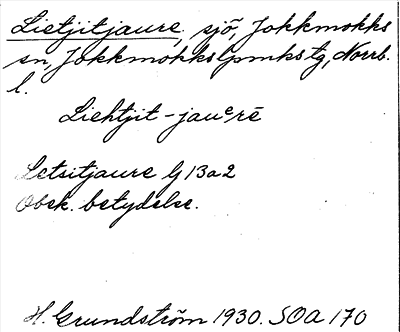 Lietjitjaure, sjö, Jokkmokks
sn, Jokkmokkslpmkstg, Norrb.
l.
Liehtjit-jauᵉrē
Letsitjaure lj 13a2
Obek. betydelse.
H. Grundström 1930. SOA 170